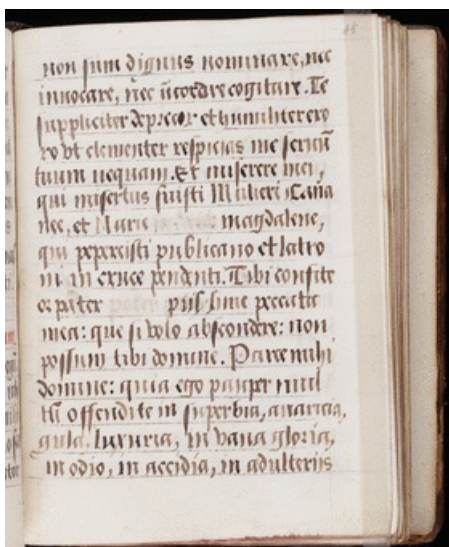 65
non sum dignus nominare, nec
inuocare, nec ī corde cogitare. Te
suppliciter deprecor et humiliter exo
ro vt clementer respicias me seruū
tuum nequam. Et miserere mei,
qui misertus fuisti Mulieri Cana
nee, et Marie magdalene,
qui pepercisti publicano et latro
ni in cruce pendenti. Tibi confite
or pater piissime peccata
mea: que si volo abscondere: non
possum tibi domine. Parce mihi
domine: quia ego pauper mul
tū offendi te in superbia, auaricia,
gula, luxuria, in vana gloria,
in odio, in accidia, in adulterijs